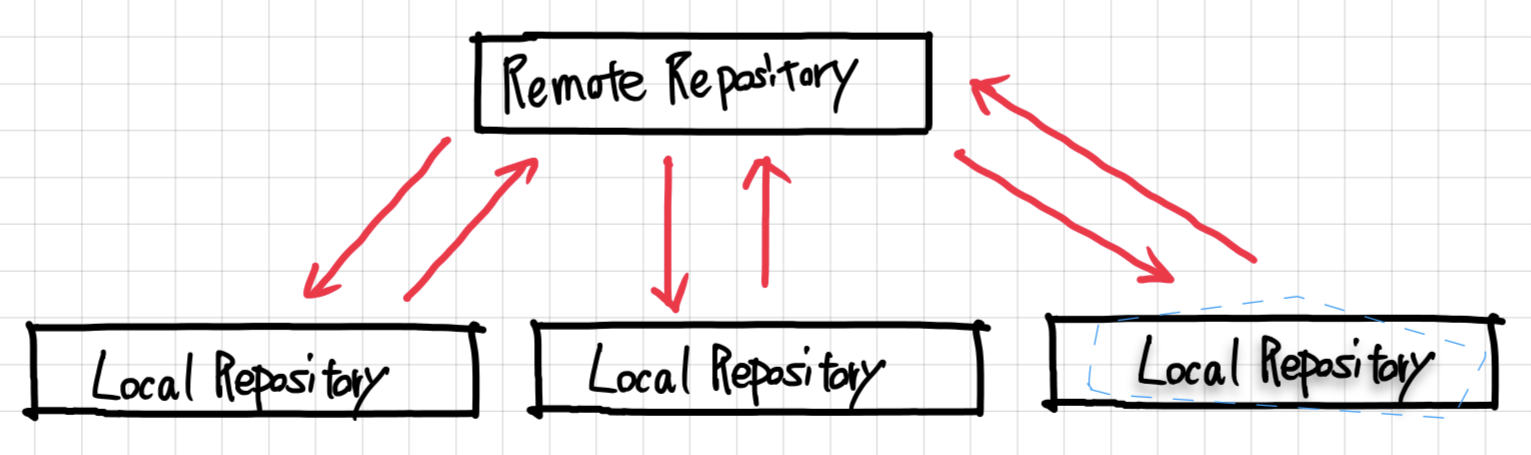 Remote Repository
Local Repository
Local Repository
Local Repository